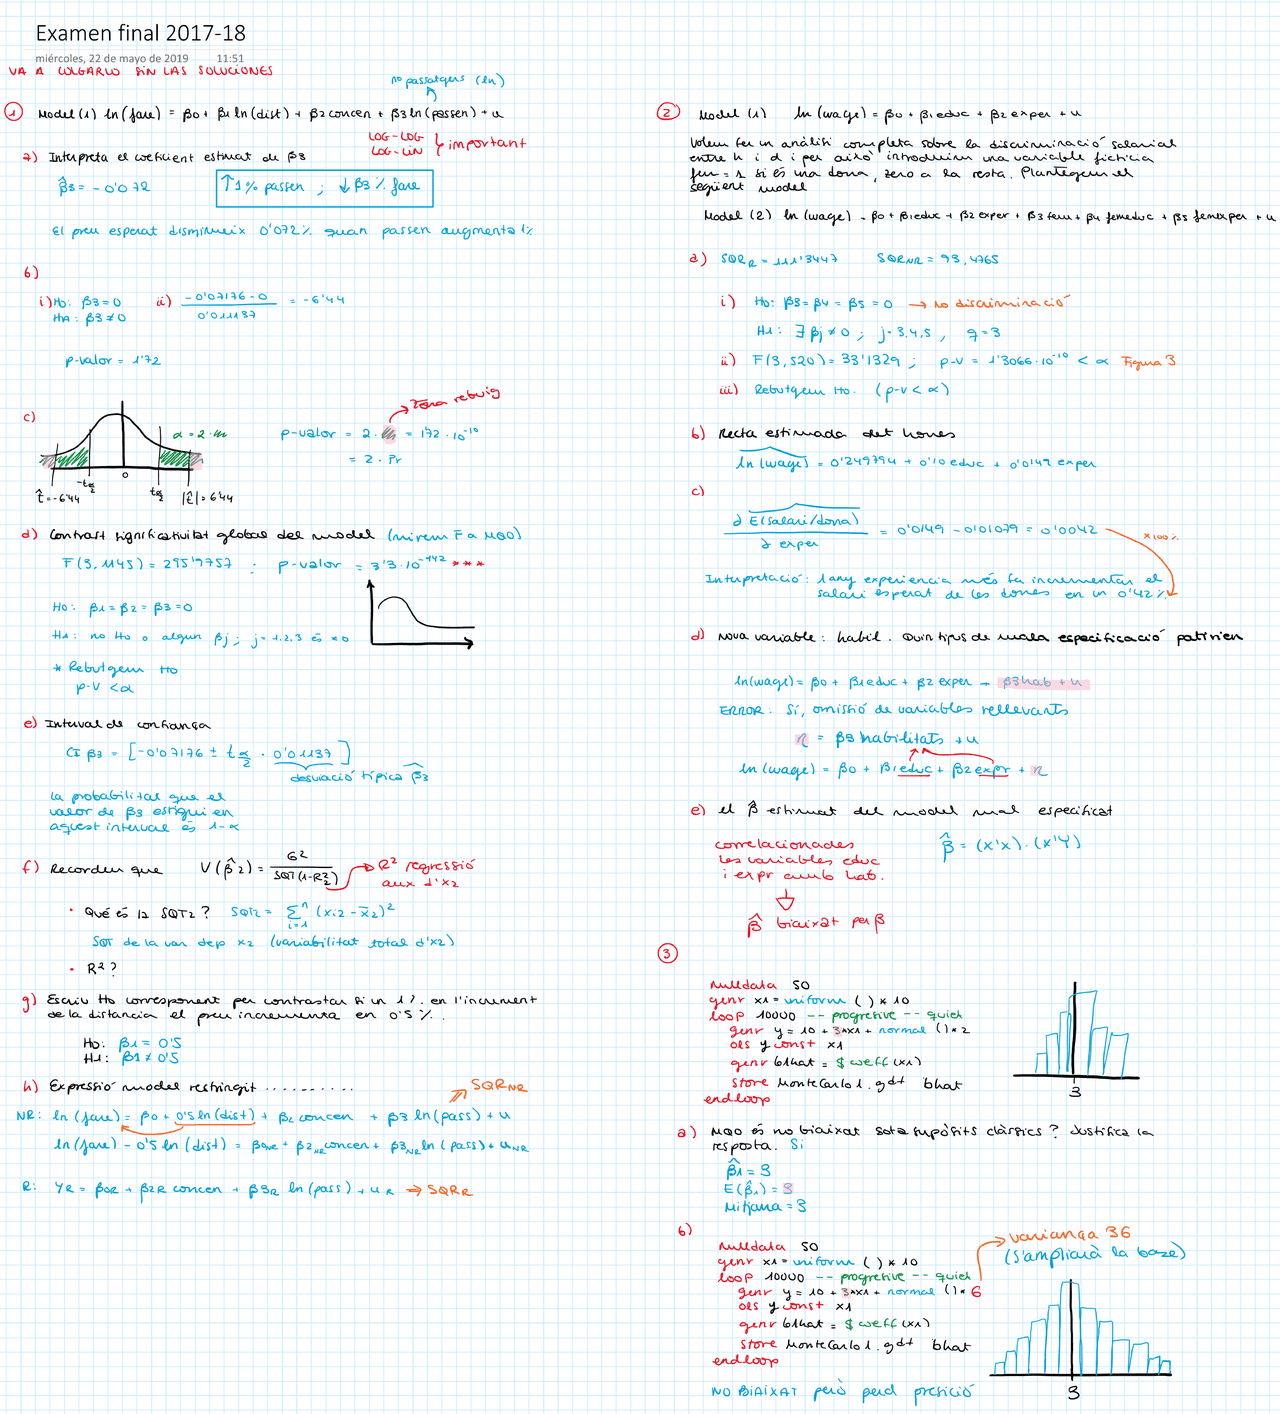 Examen final 2017-18
miércoles, 22 de mayo de 2019 11:51
VA A COLGARLO SIN LAS SOLUCIONES
nº passatgers (ln)
1 Model (1) ln(fare) = β0 + β1 ln(dist) + β2 concen + β3 ln(passen) + u
LOG-LOG
LOG-LIN
important
a) Interpreta el coeficient estimat de β3
β̂3 = -0'072
↑1% passen ; ↓β3 % fare
El preu esperat disminueix 0'072% quan passen augmenta 1%
b)
i) H0: β3 = 0 ii) -0'07176 - 0 / 0'01137 = -6'44
HA: β3 ≠ 0
p-valor = 1'72
c)
Zona rebuig
α = 2·
p-valor = 2· = 172·10^-10
= 2·Pr
-tα/2 0 tα/2
t̂ = -6'44 |t̂| = 6'44
d) Contrast significativitat global del model (mirem F a MQO)
F(3, 1145) = 295'9757 ; p-valor = 3'3·10^-142 ***
H0: β1 = β2 = β3 = 0
H1: no H0 o algun βj ; j = 1,2,3 és ≠ 0
* Rebutgem H0
p-v < α
e) Interval de confiança
CI β3 = [-0'07176 ± tα/2 · 0'01137]
desviació típica β̂3
La probabilitat que el
valor de β3 estigui en
aquest interval és 1-α
f) Recorden que V(β̂2) = σ² / SQT(1-R²2) → R² regressió
aux d'x2
• Qué és la SQT2? SQT2 = Σ i=1 n (xi2 - x̄2)²
SQT de la var dep x2 (variabilitat total d'x2)
• R²?
g) Escriu H0 corresponent per contrastar si un 1%. en l'increment
de la distancia el preu incrementa en 0'5%.
H0: β1 = 0'5
H1: β1 ≠ 0'5
h) Expressió model restringit ..........
SQR NR
NR: ln(fare) = β0 + 0'5 ln(dist) + β2 concen + β3 ln(pass) + u
ln(fare) - 0'5 ln(dist) = β0NR + β2NR concen + β3NR ln(pass) + uNR
R: YR = β0R + β2R concen + β3R ln(pass) + uR ⇒ SQRR
2 Model (1) ln(wage) = β0 + β1 educ + β2 exper + u
Volem fer un anàlisi completa sobre la discriminació salarial
entre h i d i per això introduim una variable fictícia
fem = 1 si és una dona, zero a la resta. Plantegem el
següent model
Model (2) ln(wage) = β0 + β1 educ + β2 exper + β3 fem + β4 femeduc + β5 femexper + u
a) SQRR = 111'3447 SQRNR = 93,4765
i) H0: β3 = β4 = β5 = 0 → No discriminació
H1: ∃ βj ≠ 0 ; j = 3,4,5 , q = 3
ii) F(3,520) = 33'1329 ; p-v = 1'3066·10^-10 < α Figura 3
iii) Rebutgem H0. (p-v < α)
b) Recta estimada del homes
ln(wage) = 0'249794 + 0'10 educ + 0'0149 exper
c)
∂E(salari/dona) / ∂ exper = 0'0149 - 0'01079 = 0'0042
*100%
Interpretació: 1 any experiencia més fa incrementar el
salari esperat de les dones en un 0'42%
d) Nova variable: habil. Quin tipus de mala especificació patirien
ln(wage) = β0 + β1 educ + β2 exper + β3 hab + u
ERROR: Sí, omissió de variables rellevants
r = β3 habilitats + u
ln(wage) = β0 + β1 educ + β2 expr + r
e) el β̂ estimat del model mal especificat
correlacionades
les variables educ
i expr amb hab.
β̂ = (x'x)·(x'Y)
β̂ biaixat per β
3
nulldata 50
genr x1 = uniform ( ) * 10
loop 10000 -- progresive -- quiet
genr y = 10 + 3*x1 + normal ( ) * 2
ols y const x1
genr b1hat = $coeff(x1)
store MonteCarlo1.gdt bhat
endloop
3
a) MQO és no biaixat sota supòsits clàssics? Justifica la
resposta. Si
β̂1 = 3
E(β̂1) = 3
Mitjana = 3
b)
variança 36
(S'ampliarà la base)
nulldata 50
genr x1 = uniform ( ) * 10
loop 10000 -- progresive -- quiet
genr y = 10 + 3*x1 + normal ( ) * 6
ols y const x1
genr b1hat = $coeff(x1)
store MonteCarlo1.gdt bhat
endloop
NO BIAIXAT però perd precisió
3